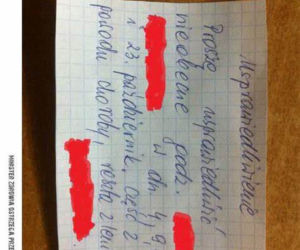 Usprawiedliwienie
Proszę usprawiedliwić
nieobecne godz.
w dn 4, 9,
i 23. październik, część z
powodu choroby, reszta z
MINISTER ZDROWIA OSTRZEGA